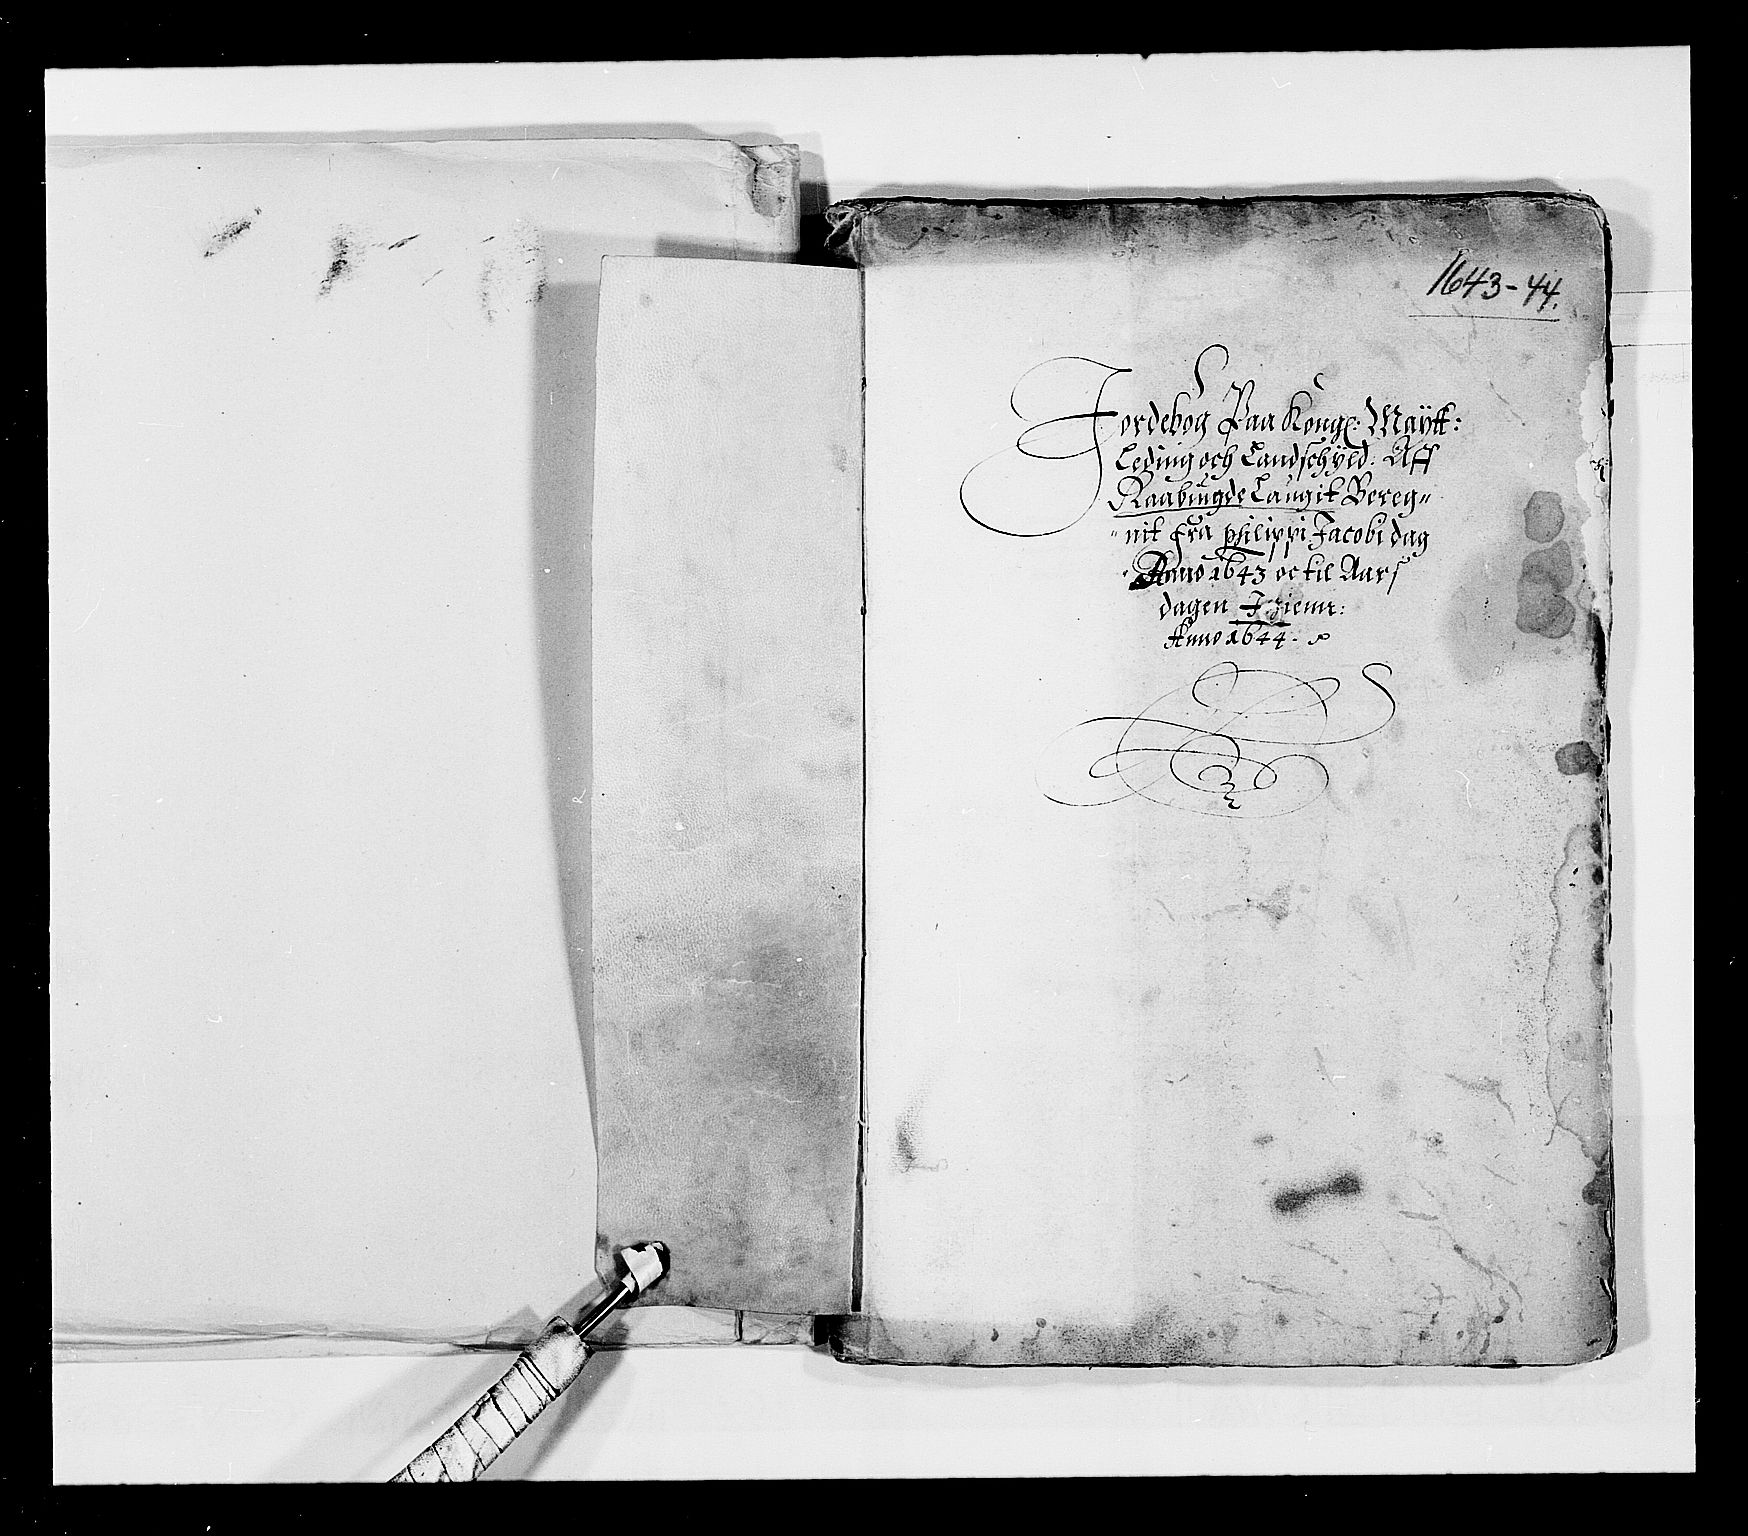 1643-44.
Jordebog Paa Kongl: Maÿtt:
Leding och Landschÿld: Aff
Raabÿgde Laugit Bereg„
„nit fra philippi Jacobi dag
Anno 1643 oc til Aars
dagen Igienn:
Anno 1644.